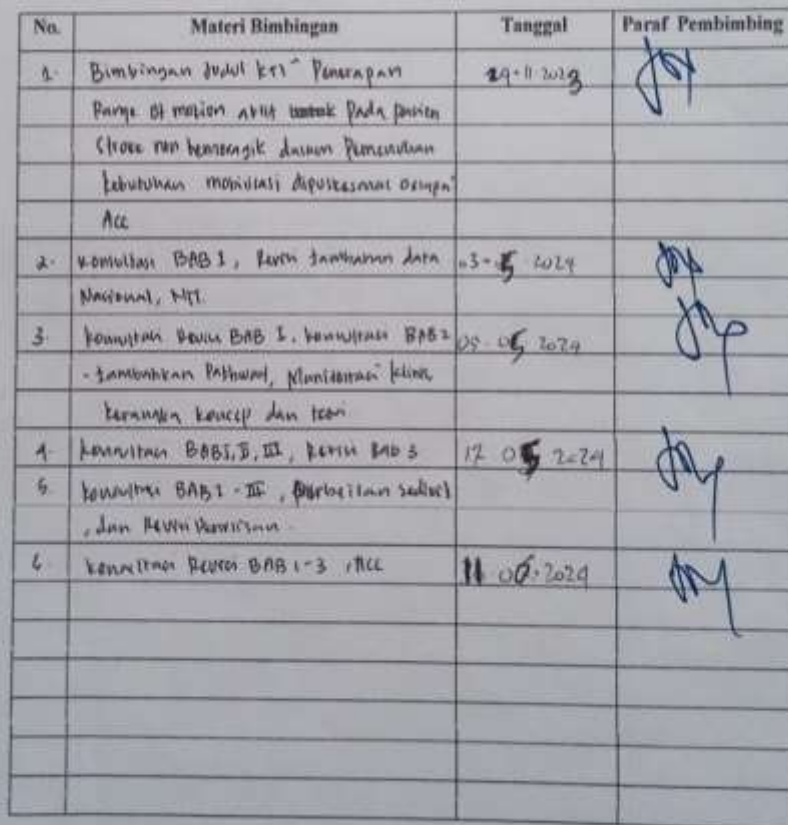 No. Materi Bimbingan Tanggal Paraf Pembimbing
1. Bimbingan Judul KTI "Penerapan 29-11-2023
Range Of motion aktif untuk Pada pasien
Stroke non hemoragik dalam Pemenuhan
kebutuhan mobilisasi dipuskesmas Oesapa"
Acc
2. Konsultasi BAB I, Revisi tambahan data 03-5 2024
Nasional, NTT.
3. konsultasi Revisi BAB I, konsultasi BAB 2 05 2024
- tambahkan Pathway, Manifestasi klinis,
kerangka konsep dan teori
4. konsultasi BAB I, II, III, Revisi Bab 3 17 05 2024
5. konsultasi BAB I - III, Perbaikan
, dan Revisi
6. konsultasi Revisi BAB 1-3, Acc 11 2024